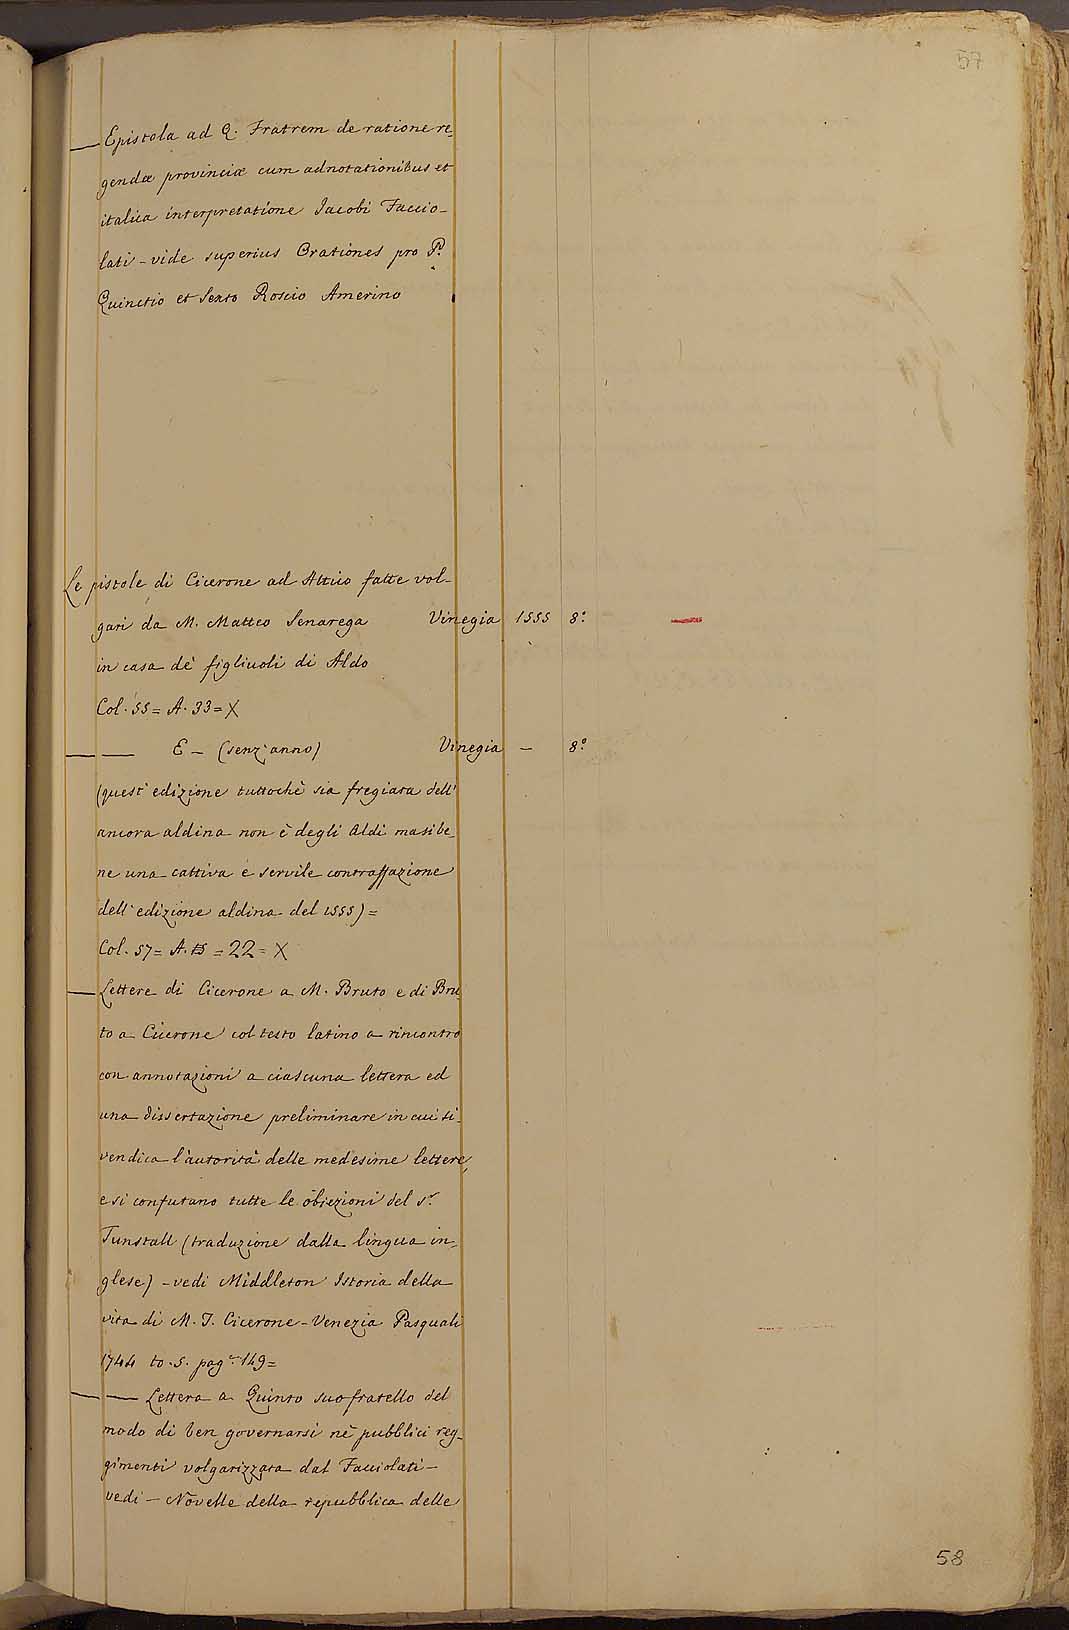 57
— Epistola ad Q. Fratrem de ratione re-
gendæ provinciæ cum adnotationibus et
italica interpretatione Jacobi Faccio-
lati - vide superius Orationes pro P.
Quinctio et Sexto Roscio Amerino
Le pistole di Cicerone ad Attico fatte vol-
gari da M. Matteo Senarega Vinegia 1555 8.°
in casa de' figliuoli di Aldo
Col. 55 = A. 33 = X
— — E — (senz'anno) Vinegia — 8.°
(quest'edizione tuttochè sia fregiata dell'
ancora aldina non è degli Aldi masibe-
ne una cattiva e servile contraffazione
dell'edizione aldina del 1555) =
Col. 57 = A. = 22 = X
— Lettere di Cicerone a M. Bruto e di Bru
to a Cicerone col testo latino a rincontro
con annotazioni a ciascuna lettera ed
una dissertazione preliminare in cui si
vendica l'autorità delle medesime lettere,
e si confutano tutte le obiezioni del S.r
Tunstall (traduzione dalla lingua in-
glese) - vedi Middleton Istoria della
vita di M. T. Cicerone - Venezia Pasquali
1744 to. 5. pag. 149 =
— — Lettera a Quinto suo fratello del
modo di ben governarsi nè pubblici reg-
gimenti volgarizzata dal Facciolati -
vedi - Novelle della repubblica delle
58